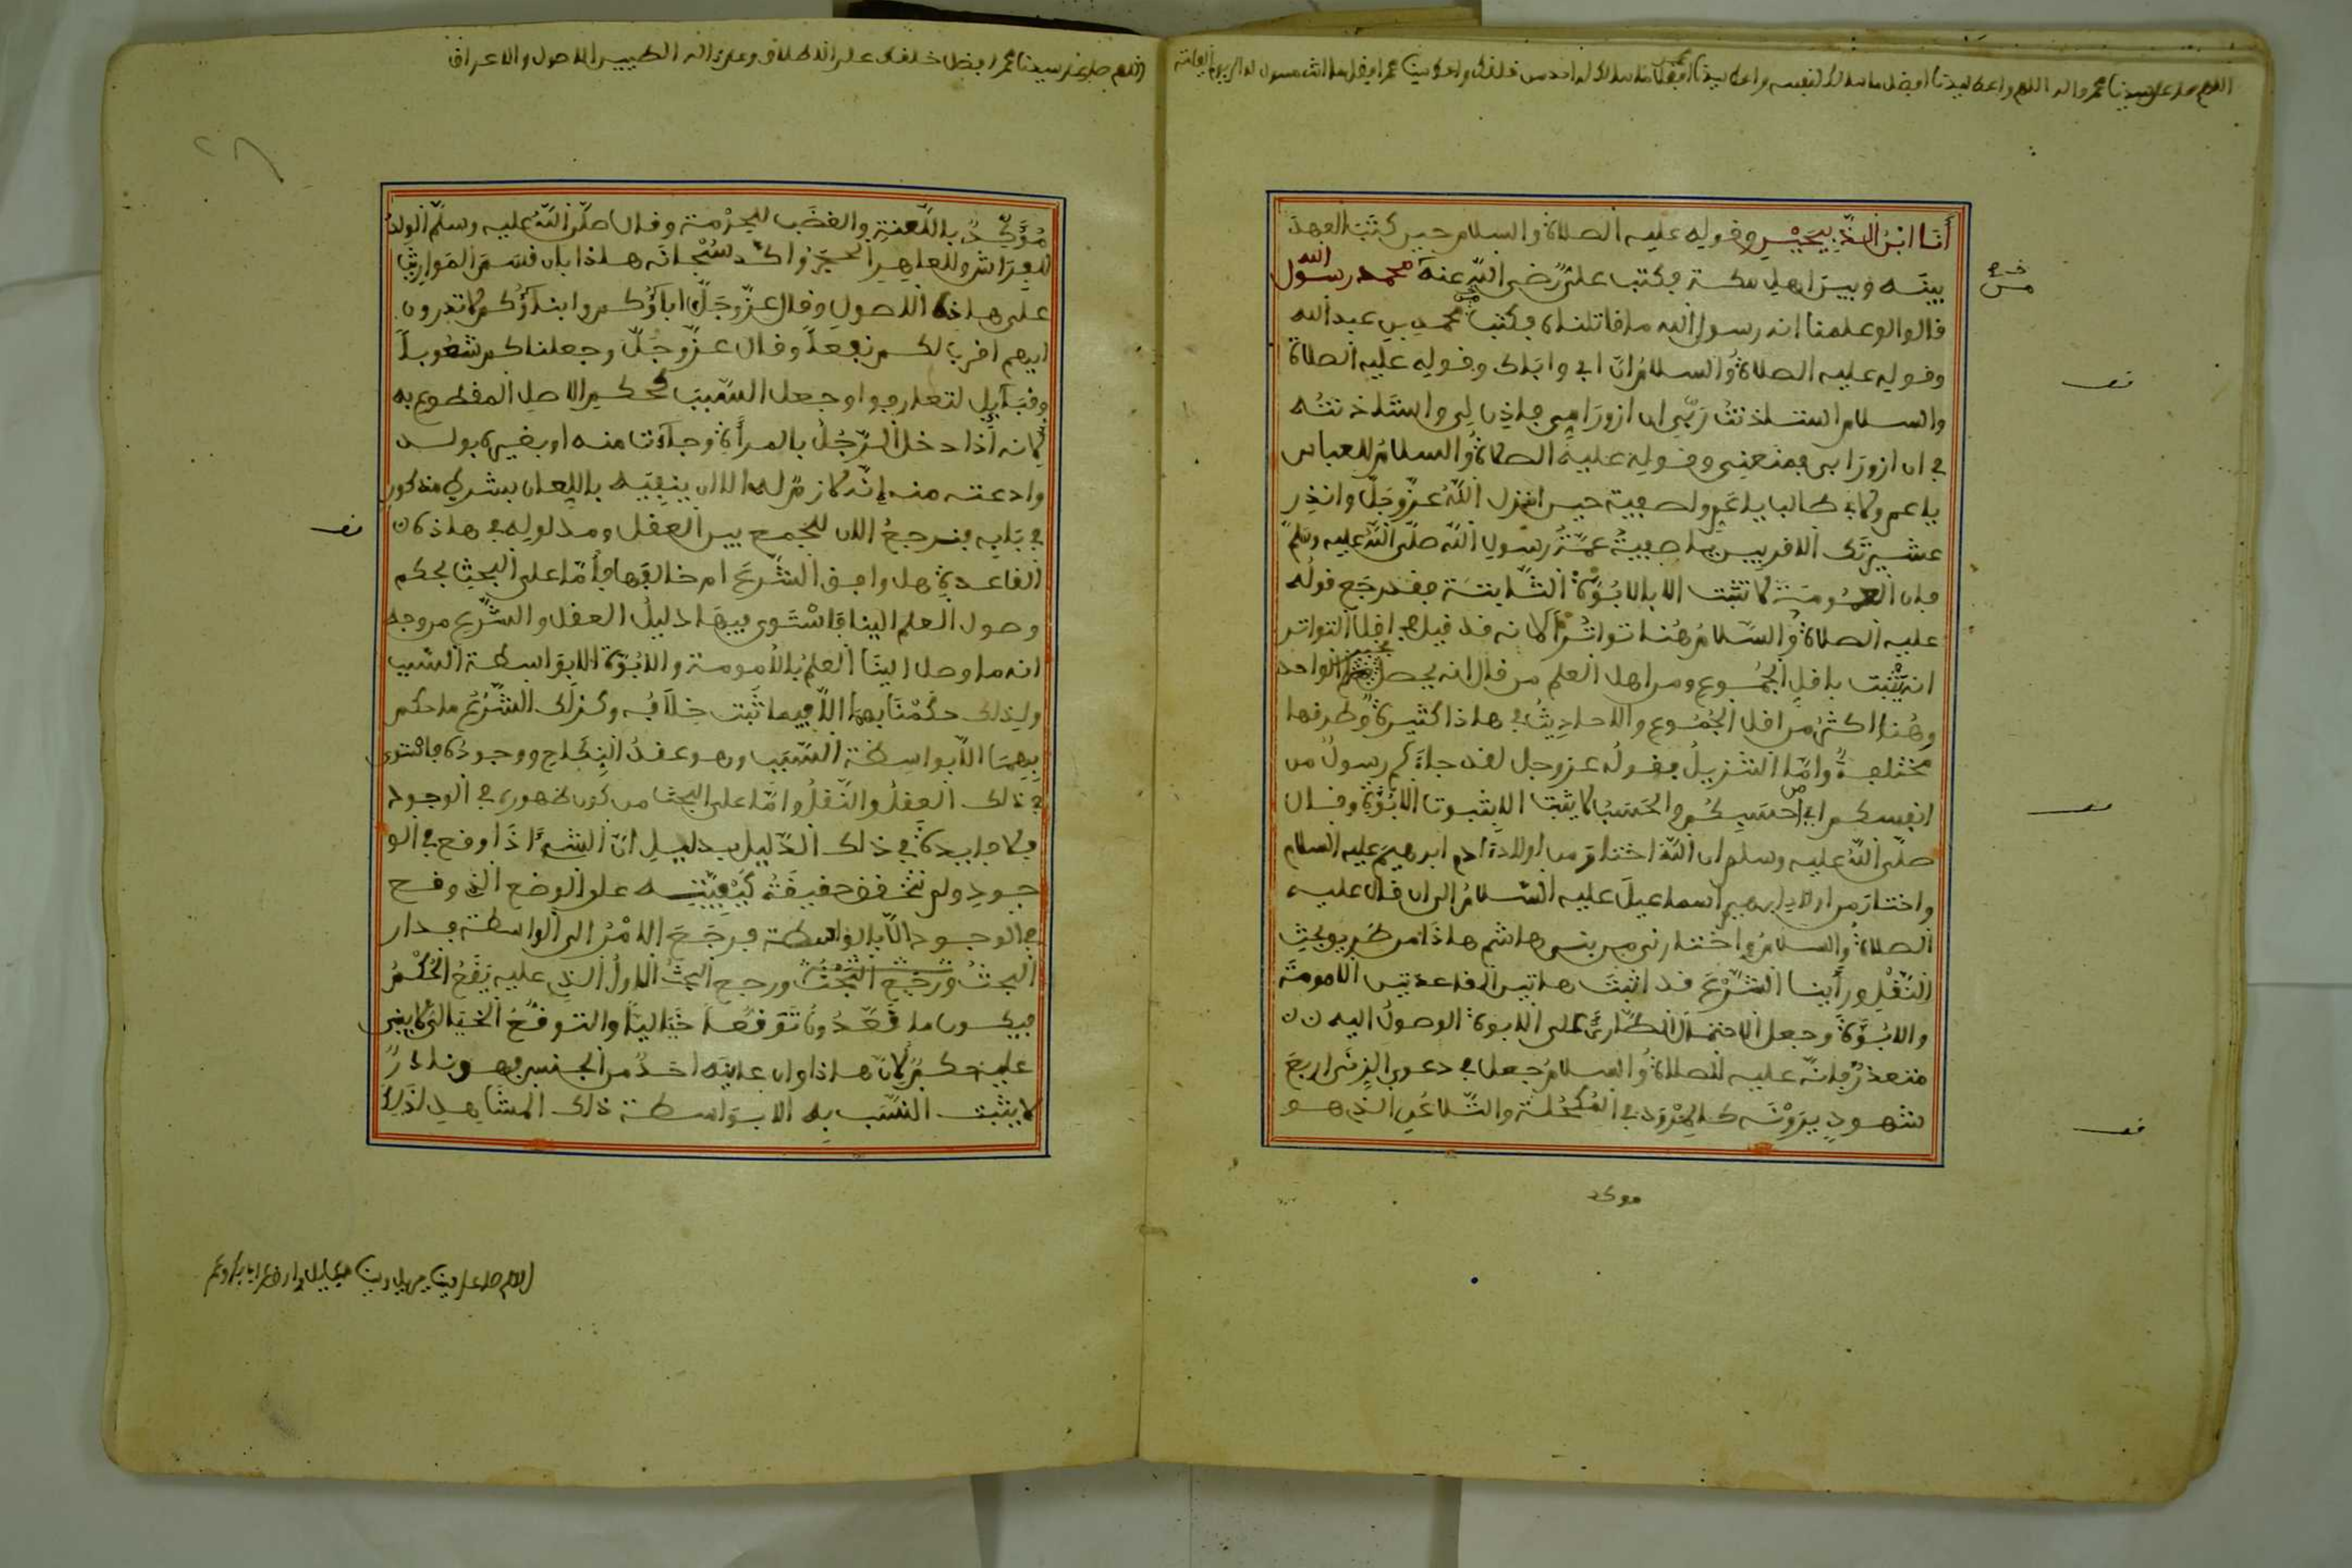 اللهم صل على سيدنا محمد وءاله اللهم واعط لسيدنا افضل ما سالك لنفسه واعط لسيدنا محمد افضل ما سالك له احد من خلقك واعط سيدنا محمد افضل ما انت مسؤل له الى يوم القيامة
أَنَا ابْنُ الذَّبِيحَيْنِ وقوله عليه الصلاة والسلام حين كتَب العهدَ
بينَه وبينَ اهلِ مكة فكتب علىٌّ رضى اللّه عنه محمد رسول الله
قالوا لو علمنا انه رسول الله ما قاتلناه فكتب محمد بن عبد الله
وقوله عليه الصلاةُ والسلامُ ان ابى واباك وقوله عليه الصلاة
والسلام استاذنتُ ربّى ان ازورَ امى فاذن لى واستاذنتُه
فى ان ازورَ ابى فمنعنى وقوله عليه الصلاةُ والسلامُ للعباس
يا عم وكابى طالب يا عمِّ ولصفية حين انزل اللّهُ عزّوجَلّ وانذِر
عشيرتَك الاقربين يا صفيةُ عمّةُ رسولِ اللّه صلّى اللّهُ عليه وسلّم
فان العمُومَةَ لا تثبت الا بالابُوّةِ الثّابتَة فقد رجَع قولُه
عليه الصلاةُ والسّلامُ هُنا تواتُرًا لانه قد قيل فى اقل التواتر
انه يثْبت باقلِ الجُمُوع ومن اهل العلم من قال انه يحصل بخبر الواحد
وهُنا اكثرُ من اقل الجُمُوع والاحاديثُ فى هاذا كثيرةٌ وطرقها
مختلِفةٌ وامّا التنزيلُ فقولُه عزوجل لقد جاءَكم رسولٌ من
انفسكم اى من احسَبِكُم والحَسَبُ لا يثبت الا بثبوت الابُوّة وقال
صلّى اللّهُ عليه وسلم ان اللّهَ اختارَ من اولادِ ءادم ابرهيمَ عليه السلام
واختارَ من اولادِ ابرهيم اسماعيلَ عليه السّلامُ الى ان قال عليه
الصلاةُ والسلامُ واختارنى من بنى هاشم هاذا من طَرِيقِ بحثِ
النّقْلِ ورأينا الشّرْعَ قد اثبتَ هاتين القاعدتين الامومَةَ
والابُوّةَ وجعل الاحتمالَ الطّارئَ على الابوةِ الوصولُ اليه
متعذرٌ فانّه عليه الصلاةُ والسلامُ جعل فى دعوى الزنى اربعَ
شهودٍ يرَوْنَه كالمِرْوَد فى المُكحُلة والتّلاعُن الذى هو
موكد
اللهم صل على سيدنا محمد افضل خلقك على الاطلاق وعلى ءاله الطيبين الاصول والاعراق
مُؤَكِّدٌ باللّعنةِ والغضَب للحُرْمة وقال صلّى اللّهُ عليه وسلّم الولدُ
للفِرَاش وللعاهِرِ الحجَرُ واكد سُبْحانَه هاذا بان قسمَ المَوارِيثَ
على هاذه الاصولِ وقال عزّوجَلّ اباؤُكم وابناؤُكم لا تدرون
ايهم اقربُ لكم نفعًا وقال عزّوجَلّ وجعلناكم شعُوبًا
وقبَآئِل لتعارفوا وجعل السّببَ كحكم الاصلِ المقطوع به
لانه اذا دخلَ الرّجُلُ بالمرأةِ وجآءَت منه او بغيره بولد
وادعته منه انّه لازمٌ له الا ان ينفِيَه باللِعان بشروط مذكور
فى بَابِه فنرجعُ الان للجمع بين العقل ومدلوله فى هاذه
القاعدةِ هل وافق الشّرعَ ام خالفَها فأمّا على البحث بحكم
وصول العلم الينا فاسْتَوى فيها دليلُ العقل والشّرع من وجه
انه ما وصل الينَا العلمُ بالأمومة والابُوّة الا بوَاسطة السّبب
ولِذلك حكَمْنَا بهما الا فيما ثَبت خِلافُه وكذلك الشّرْعُ ما حكَم
بِهِمَا الاّ بواسِطة السّبَب وهو عقدُ النِكَاح ووجودُه فاسْتوى
فى ذلك العقلُ والنّقلُ وامّا على البحث من كون ظهوره فى الوجود
فلا فايدةَ فى ذلك الدّليل بدليلِ انّ الشىءَ اذَا وقع فى الو
جودِ ولم تتحقق حقيقَةُ كَيْفِيّتِه على الوضع الذى وقع
فى الوجود الاّ بالواسطة فرجَعَ الامْرُ الى الواسطة فدار
البحثُ ورَجَع البَحْثُ ورجع البحثُ الاولُ الذى عليه يَقَعُ الحُكْمُ
فيكون ما قعّدُوهُ تَوَقعًا خيَاليًا والتوقُعُ الخيَالىّ لا يبنى
عليه حكمٌ لانّ هاذا وان عاينَه احدٌ من الجنس فهو نادرٌ
لا يثبت النسَب بِه الا بوَاسطة ذلك المشَاهِدِ لذلِكَ